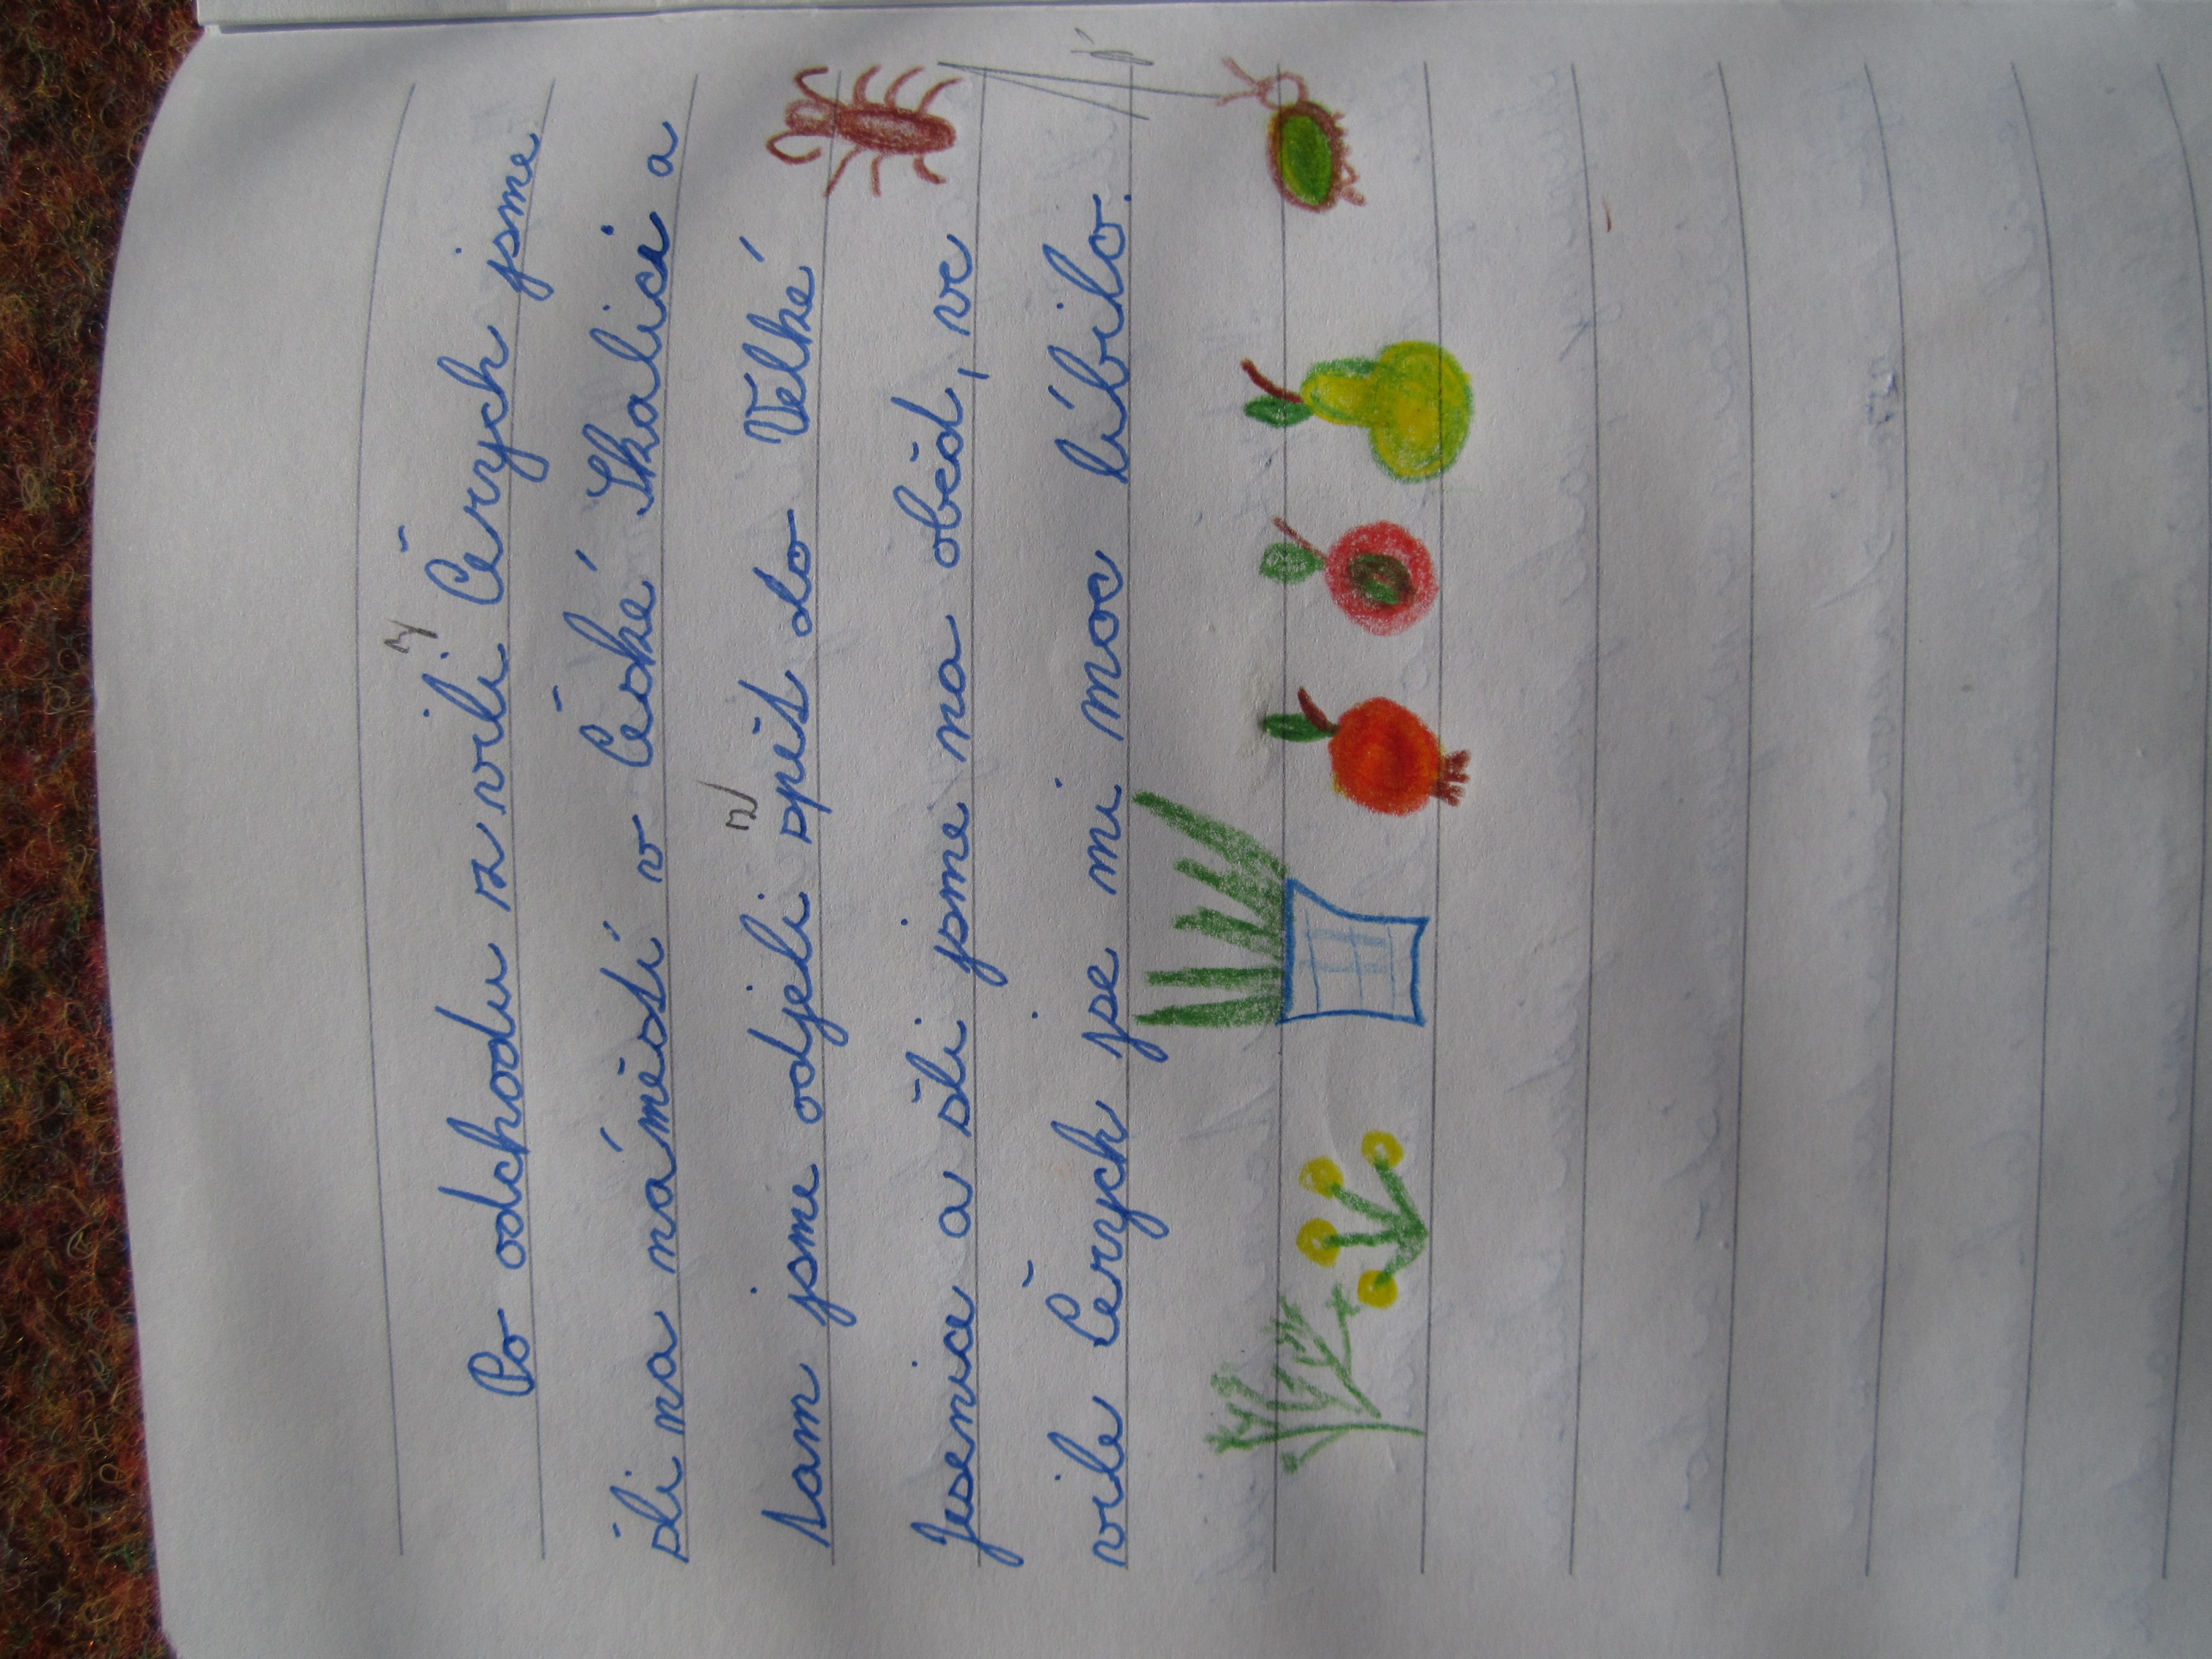 y
Po odchodu z vili Čerych jsme
šli na náměstí v České Skalici a
z
tam jsme odjeli spět do Velké
Jesenice a šli jsme na oběd, ve
vile Čerych jse mi moc líbilo.